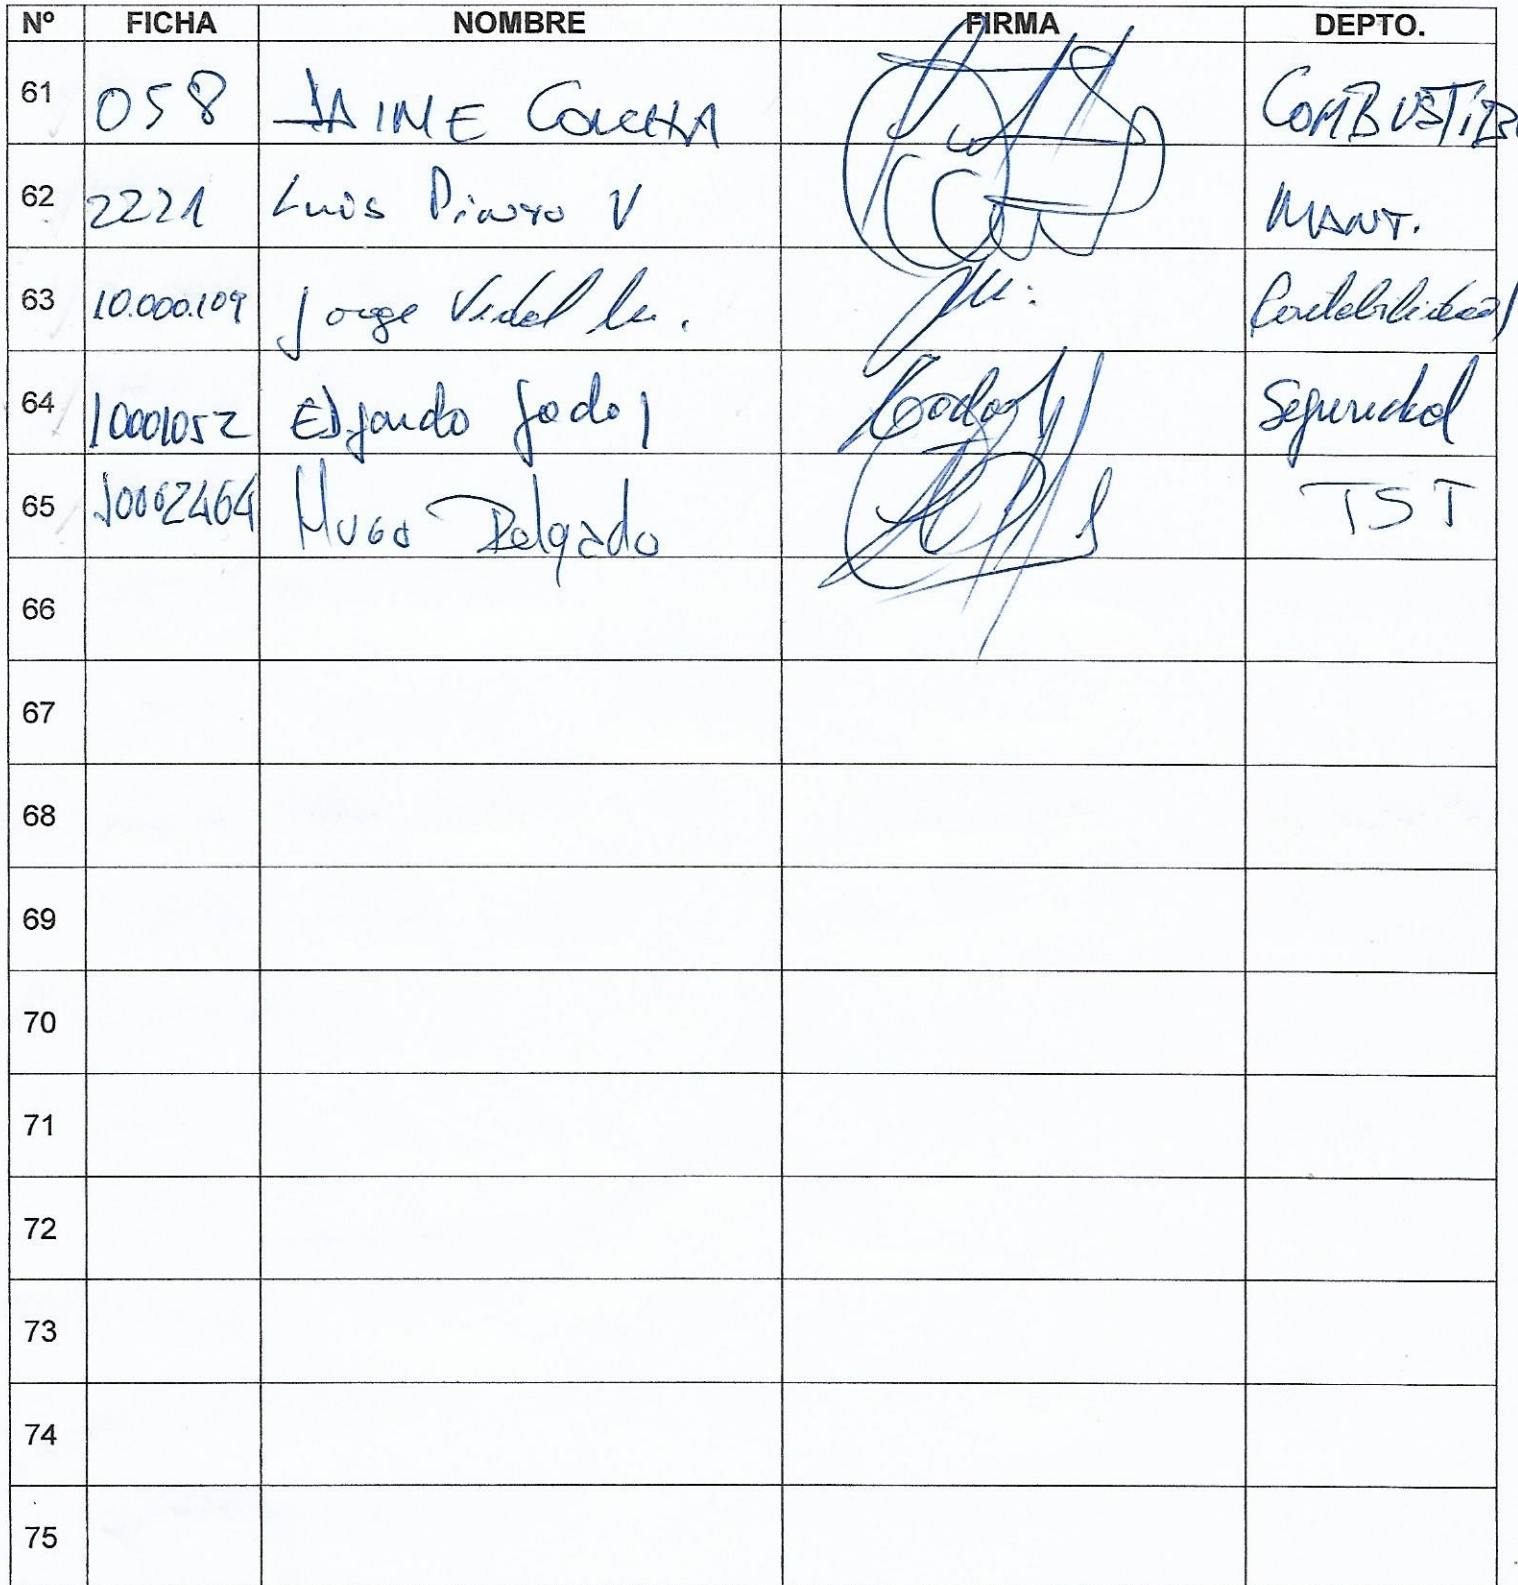 Nº FICHA NOMBRE FIRMA DEPTO.
61 058 JAIME CONCHA COMBUSTIB
62 2221 Luis V MANT.
63 10.000.109 Jorge Vidal Contabilidad
64 10001052 Edgardo Godoy Godoy Seguridad
65 10002464 HUGO Delgado TST
66
67
68
69
70
71
72
73
74
75